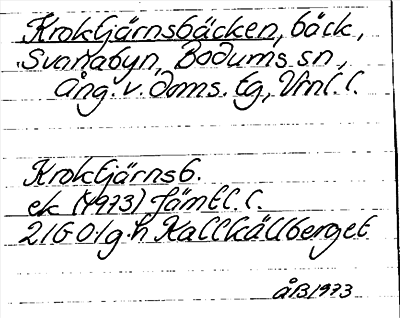 Kroktjärnsbäcken, bäck,
Svanabyn, Bodums sn,
Ång. v. doms. tg, Vnl. l.
Kroktjärnsb.
ek (1973) Jämtl. l.
21G 0/g-h Kallkällberget
ÅB 1973